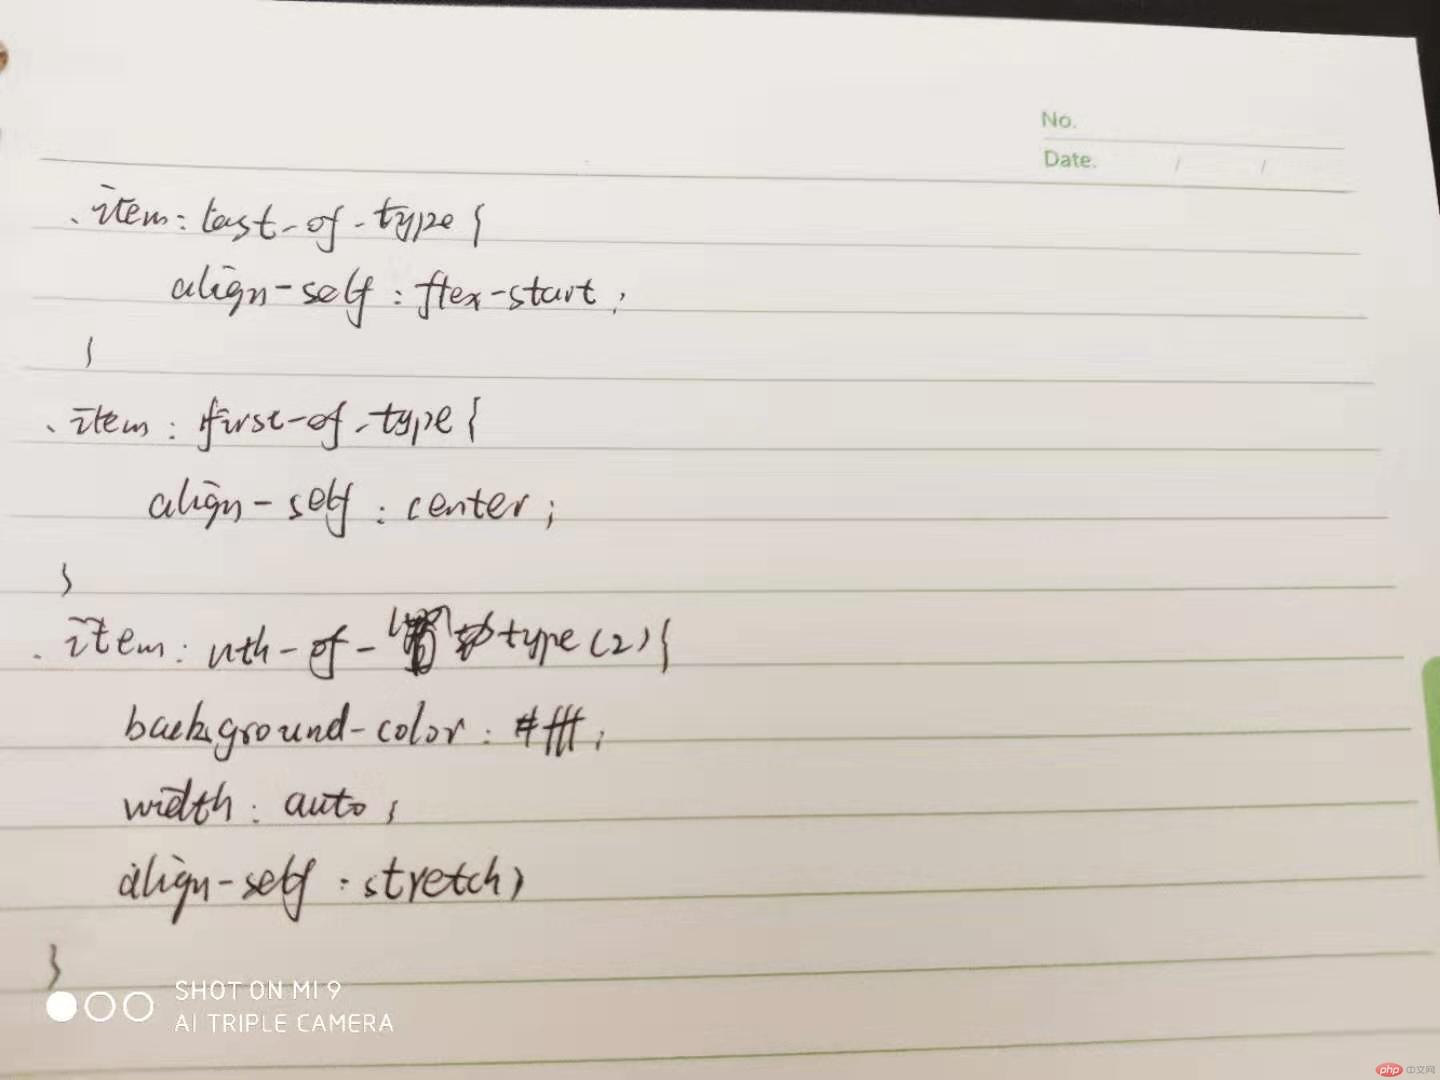 No.
Date. / /
.item:last-of-type{
align-self:flex-start;
}
.item:first-of-type{
align-self:center;
}
.item:nth-of-type(2){
background-color:#fff;
width:auto;
align-self:stretch;
}
SHOT ON MI 9
AI TRIPLE CAMERA
php 中文网